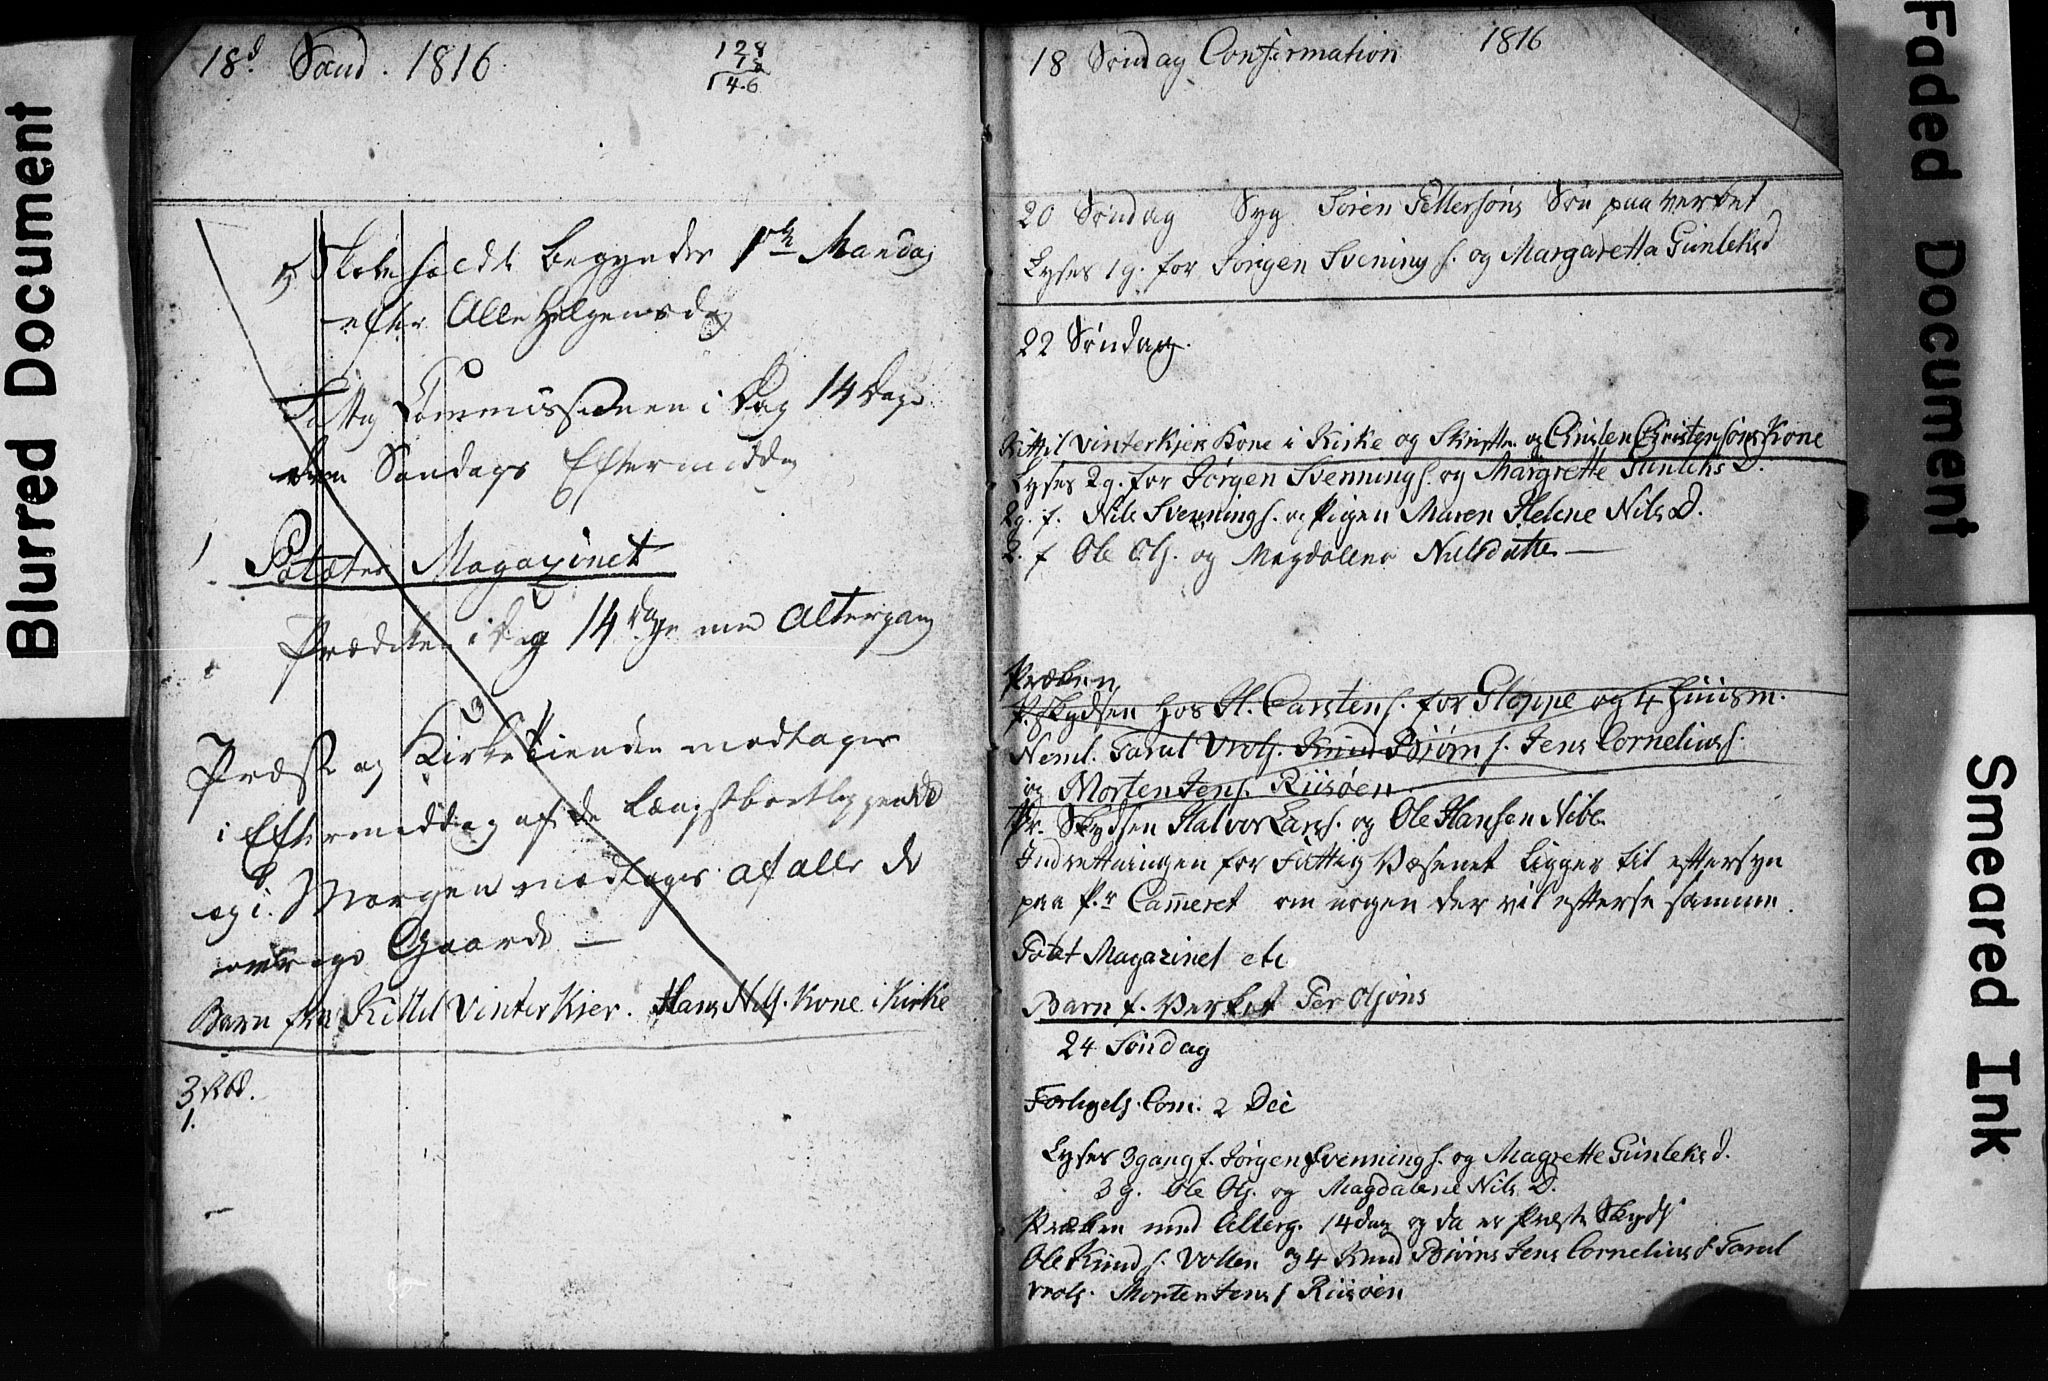 Blurred Document
18d Sønd. 1816
128
18
146
Skoleholdt begynder 1ste Mandag
efter Alle Helgensdag
Fattig Commissionen i Dag 14 Dage
Søndags Eftermiddag
1 Potætes Magazinet
Prædiken i Dag 14 Dage med Altergang
Præste og Kirketienden modtages
i Eftermiddag af de Længstbortliggende
og i Morgen modtages af alle de
øvrige Gaarde —
Barn fra Kittil Vinterkjer. Hans Nils. Kone i Kirke
3 Rbd.
1.
18 Søndag Confirmation 1816
20 Søndag Syg Søren Pettersøns Søn paa Verket
Lyses 1 g. for Jørgen Svenings. og Margaretta Gunleksd
22 Søndag.
Kittil Vinterkjers Kone i Kirke og Christen Christensøns Kone
Lyses 2 g. for Jørgen Svennings. og Margrette Gunleks D.
2 g. f. Nils Svennings. og Pigen Maren Helene Nils D.
2. f Ole Ols. og Magdalena Nilsdatter —
Præken
P. Skydsen hos H. Carstens. for Stoppe og 4 Huusm.
Neml. Taral Vrols. Knud Biørns. Jens Cornelius s.
og Morten Jens. Riisøen
Pr. Skydsen Halvor Lars. og Ole Hansen Nibe
Indretningen for Fattig Væsenet ligger til eftersyn
paa P.r Cam̅eret om nogen der vil efterse samme.
Potet Magazinet etc
Barn f. Verket Per Olsøns
24 Søndag
Forligels. Com. 2 Dec
Lyses 3 gang f. Jørgen Svennings. og Magrette Gunleks d.
3 g. Ole Ols. og Magdalene Nils D.
Præken med Alterg. 14 dag og da er Præste Skyds
Ole Knuds. Vollen og 4 Knud Biørns Jens Cornelius s Taral
Vrols. Morten Jens s Riisøen
Faded Document
Smeared Ink